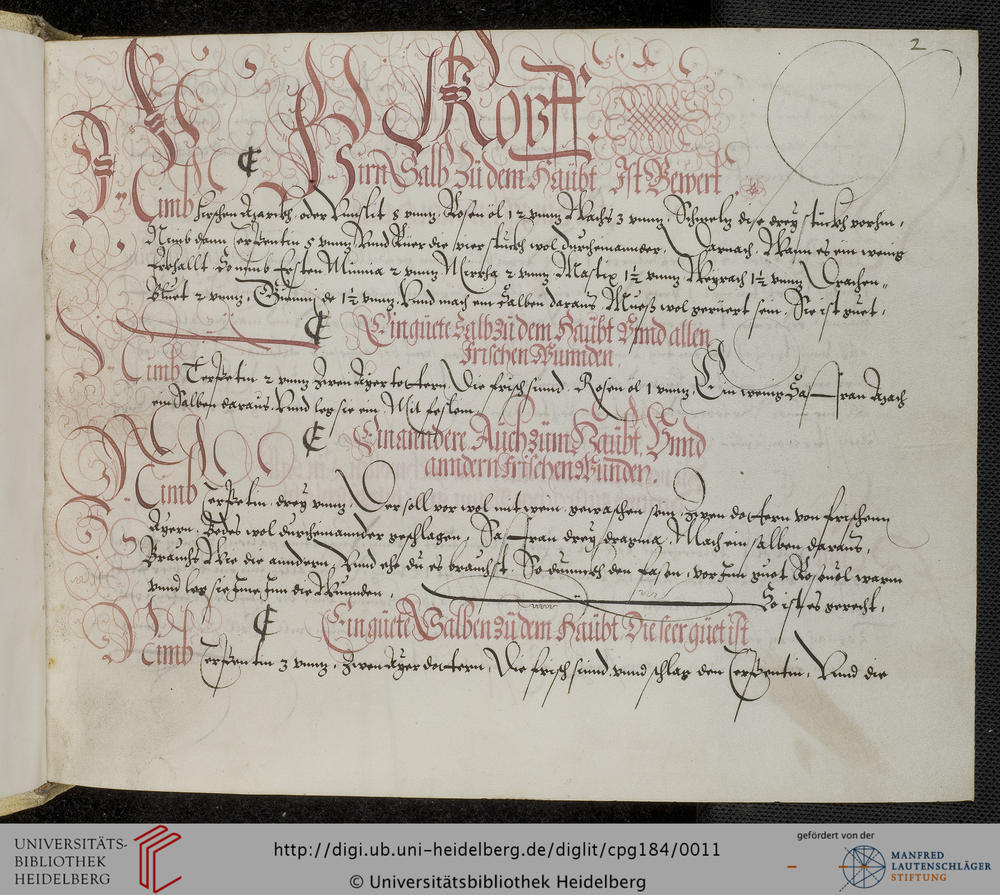 2
Kopff.
Hirn Salb Zu dem Haubt, Ist Bewert.
Nimb hirschen oder Unslit 8 vnntz, Rosen öl 12 vnntz Wachs 3 vnntz, Schmeltz dise drey stuckh vorhin,
Nimb dann Terpentin 5 vnntz, Vnnd Rüer die vier stuckh wol durcheinander, Darnach, Wann es ein wenig
Erkhallt, So nimb Ersten Mumia 2 vnntz Mirrha 2 vnntz Mastix 1½ vnntz Weyrach 1½ vnntz Drachen=
Bluet 2 vnntz, Gummi de 1½ vnntz, Vnnd mach ein Salben daraus, Mueß wol geruert sein, Sie ist guet,
Ein guete Salb zu dem Haubt Vnnd allen
Frischen Wunnden.
Nimb Terpetin 2 vnntz Zwen Ayer tottern, Die frisch sinnd, Rosen öl 1 vnntz, Ein wenig Saffran Mach
ein Salben daraus, Vnnd leg sie ein Mit feslem
Ein anndere Auch zum Haubt, Vnnd
anndern frischen Wunden.
Nimb Terpetin, drey vnntz, Der soll vor wol mit wein gewaschen sein, Zwen dottern von frischenn
Ayern, Bedes wol durcheinander geschlagen, Saffran drey dragma, Mach ein salben daraus,
Brauchs Wie die anndern, Vnnd ehe du es brauchst, So dunnckh den fasen, vor Inn guet Rosenöl warm
vnnd leg sie Inne, Inn die Wunden, So ist es gerecht,
Ein guete Salben zu dem Haubt Die seer guet ist
Nimb Terpentin 3 vnntz, Zwen Ayer dottern, Die frisch sinnd, vnnd schlag den Terpentin, Vnnd die
UNIVERSITÄTS-
BIBLIOTHEK
HEIDELBERG
http://digi.ub.uni-heidelberg.de/diglit/cpg184/0011
© Universitätsbibliothek Heidelberg
gefördert von der
MANFRED
LAUTENSCHLÄGER
STIFTUNG